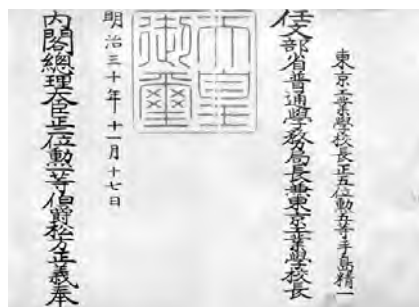 東京工業學校長正五位勳五等手島精一
任文部省普通學務局長兼東京工業學校長
天皇
御璽
明治三十年十一月十七日
內閣總理大臣正二位勳一等伯爵松方正義奉